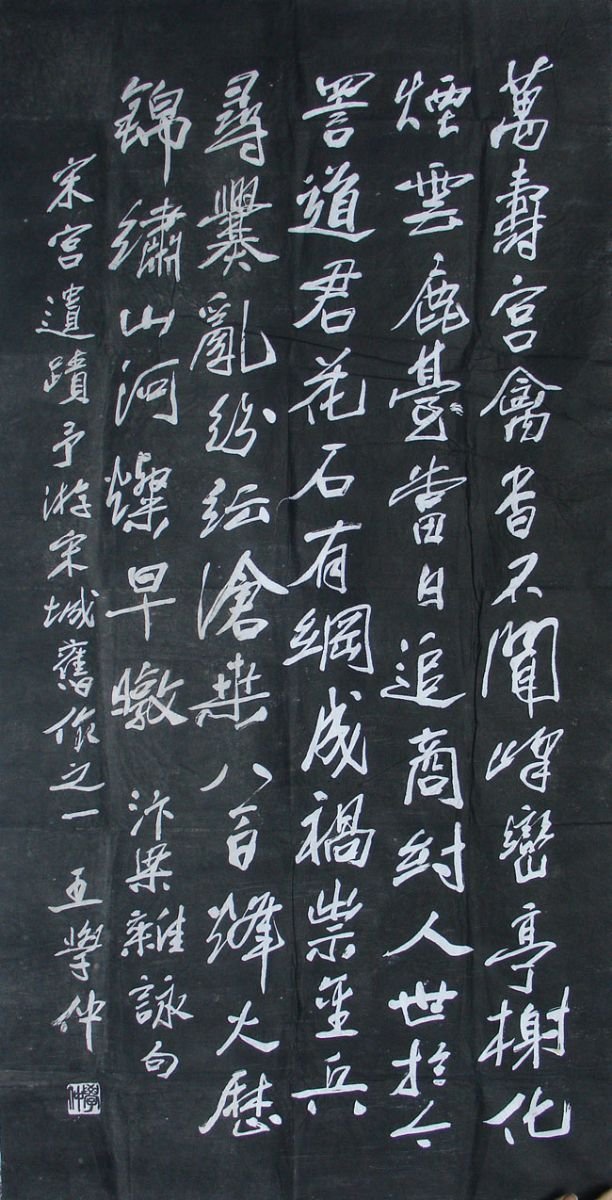 萬壽宮禽杳不聞峰巒亭榭化
煙雲鹿臺當日追商紂人世於今
詈道君花石有綱成禍祟金兵
尋釁亂紛紜滄桑八百烽火歷
錦繡山河燦早暾 汴梁雜詠句
宋宮遺蹟予游宋城舊作之一 王學仲
學仲